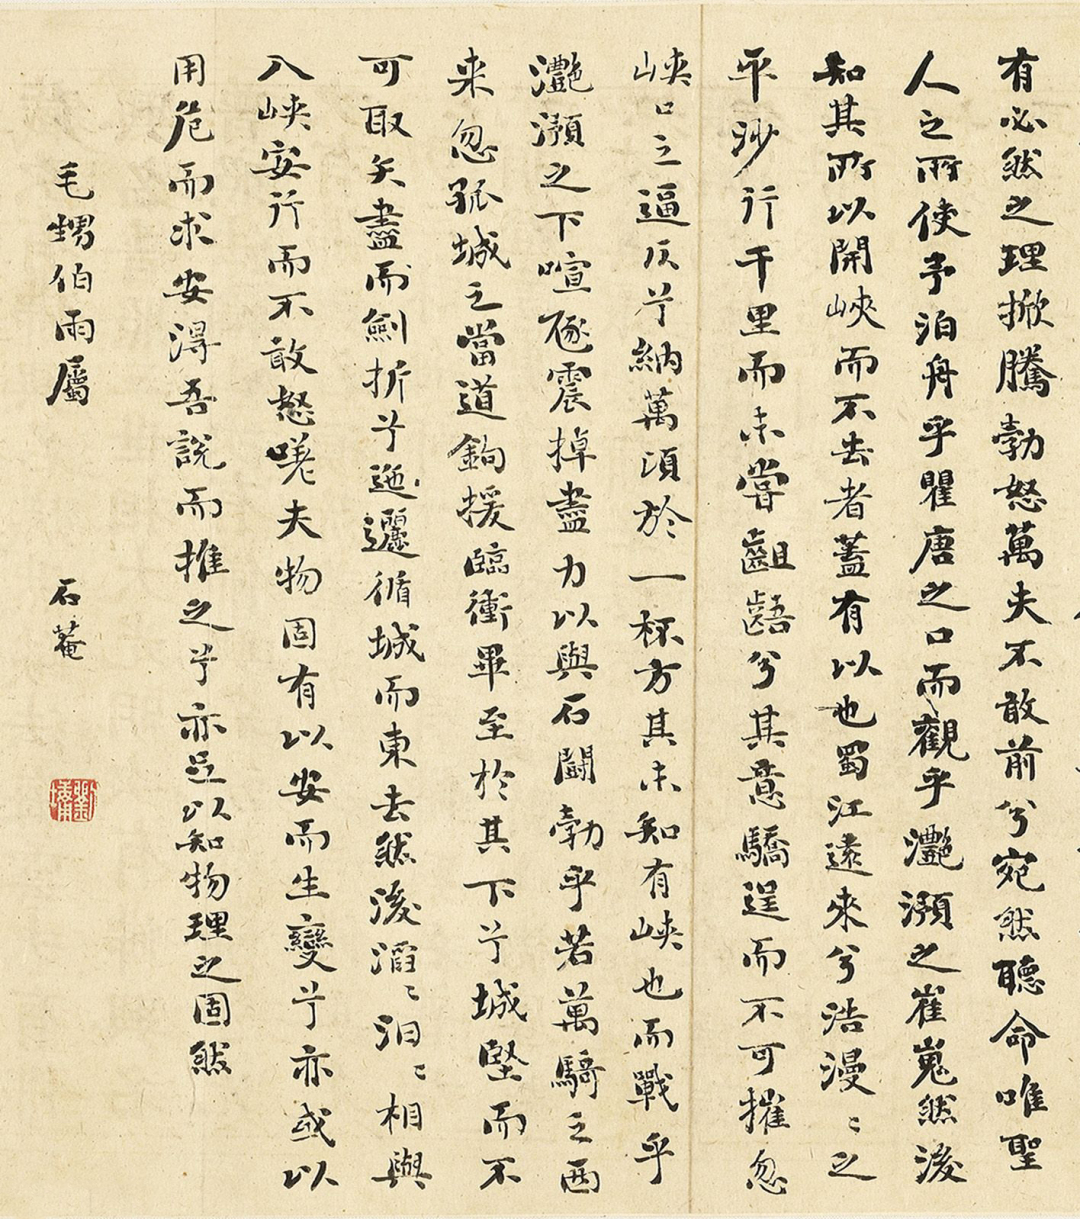 有必然之理掀騰勃怒萬夫不敢前兮宛然聽命唯聖
人之所使予泊舟乎瞿唐之口而觀乎灔澦之崔嵬然後
知其所以開峽而不去者蓋有以也蜀江遠來兮浩漫〻之
平沙行千里而未嘗齟齬兮其意驕逞而不可摧忽
峽口之逼仄兮納萬頃於一杯方其未知有峽也而戰乎
灔澦之下喧豗震掉盡力以與石鬭勃乎若萬騎之西
来忽孤城之當道鉤援臨衝畢至於其下兮城堅而不
可取矢盡而劍折兮迤邐循城而東去然後滔〻汩〻相與
入峽安行而不敢怒嗟夫物固有以安而生變兮亦或以
用危而求安得吾說而推之兮亦足以知物理之固然
毛甥伯雨屬
石菴
劉墉